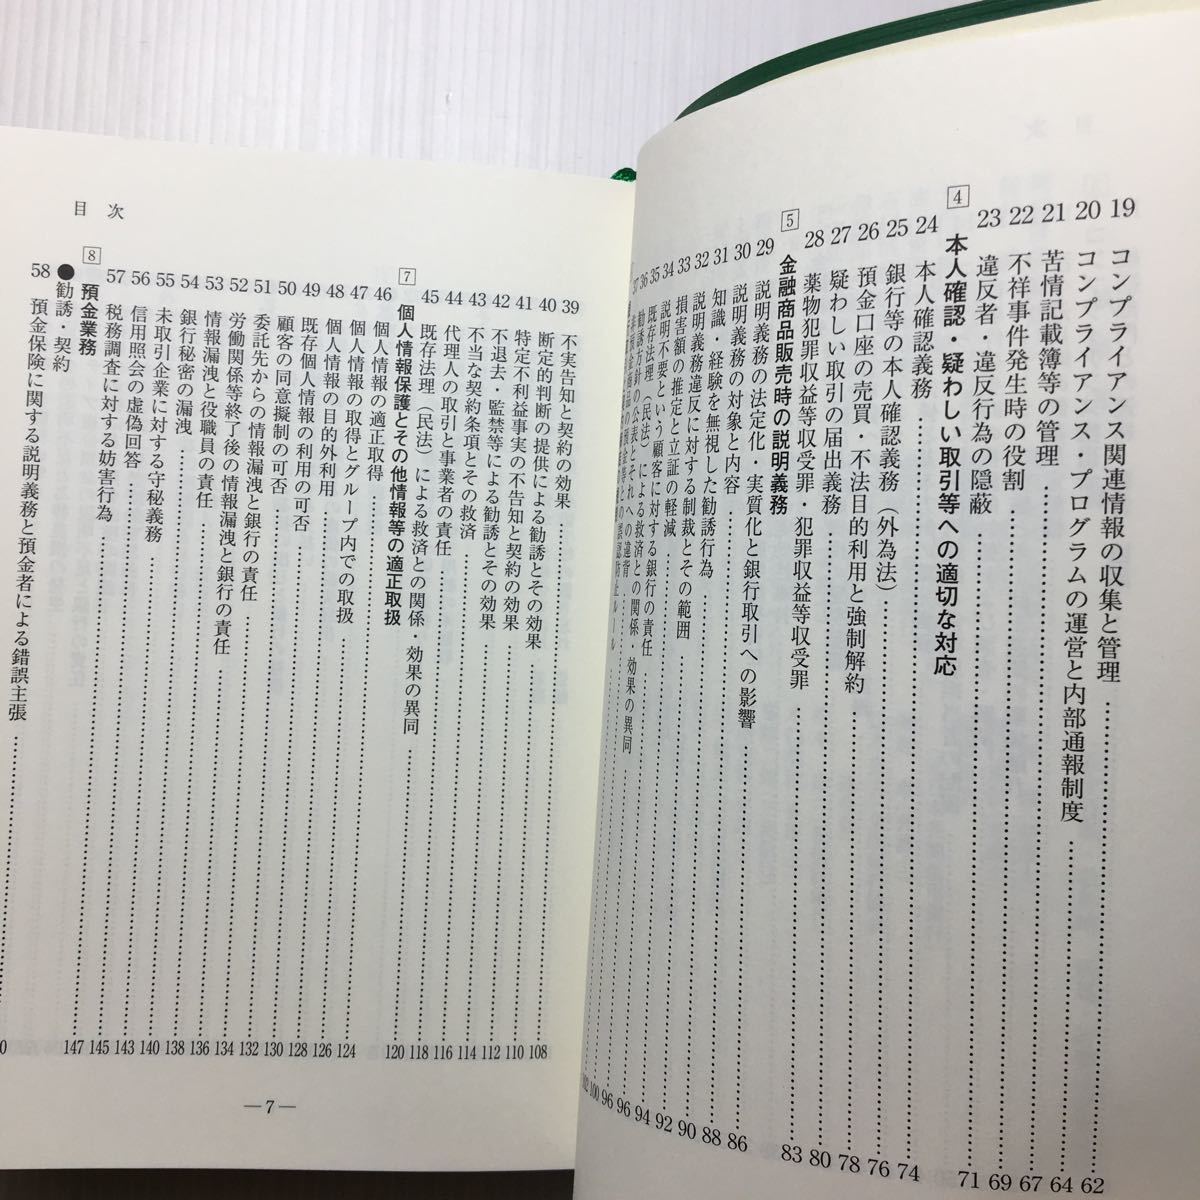 19 コンプライアンス関連情報の収集と管理 62
20 コンプライアンス・プログラムの運営と内部通報制度 64
21 苦情記載簿等の管理 67
22 不祥事件発生時の役割 69
23 違反者・違反行為の隠蔽 71
4 本人確認・疑わしい取引等への適切な対応
24 本人確認義務 74
25 銀行等の本人確認義務（外為法） 76
26 預金口座の売買・不法目的利用と強制解約 78
27 疑わしい取引の届出義務 80
28 薬物犯罪収益等収受罪・犯罪収益等収受罪 83
5 金融商品販売時の説明義務
29 説明義務の法定化・実質化と銀行取引への影響 86
30 説明義務の対象と内容 88
31 知識・経験を無視した勧誘行為 90
32 説明義務違反に対する制裁とその範囲 92
33 損害額の推定と立証の軽減 94
34 説明不要という顧客に対する銀行の責任 96
35 既存法理（民法）による救済との関係・効果の異同 96
36 勧誘方針の公表とそれへの違背 100
37 預金等との誤認防止ルール 102
目次
39 不実告知と契約の効果 108
40 断定的判断の提供による勧誘とその効果 110
41 特定不利益事実の不告知と契約の効果 112
42 不退去・監禁等による勧誘とその効果 114
43 不当な契約条項とその救済 116
44 代理人の取引と事業者の責任 118
45 既存法理（民法）による救済との関係・効果の異同 120
7 個人情報保護とその他情報等の適正取扱
46 個人情報の適正取得 124
47 個人情報の取得とグループ内での取扱 126
48 個人情報の目的外利用 128
49 既存個人情報の利用の可否 130
50 顧客の同意擬制の可否 132
51 委託先からの情報漏洩と銀行の責任 134
52 労働関係等終了後の情報漏洩と銀行の責任 136
53 情報漏洩と役職員の責任 138
54 銀行秘密の漏洩 140
55 未取引企業に対する守秘義務 143
56 信用照会の虚偽回答 145
57 税務調査に対する妨害行為 147
8 預金業務
●勧誘・契約
58 預金保険に関する説明義務と預金者による錯誤主張
—7—